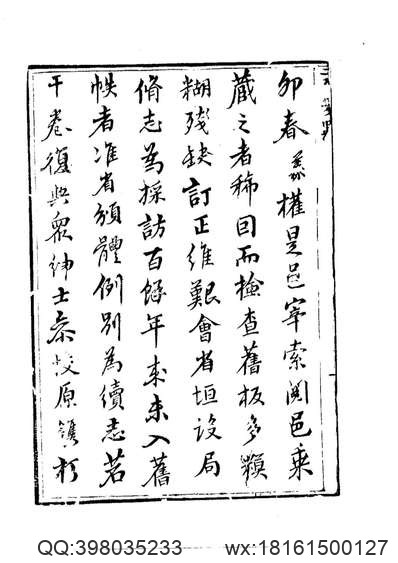 卯春 權是邑宰索閱邑乘
藏之者稀因而檢查舊板多
糊殘缺訂正維艱會省垣設局
脩志為採訪百餘年來未入舊
帙者准省頒體例別為續志若
干卷復與眾紳士叅校原
QQ:398035233 wx:18161500127